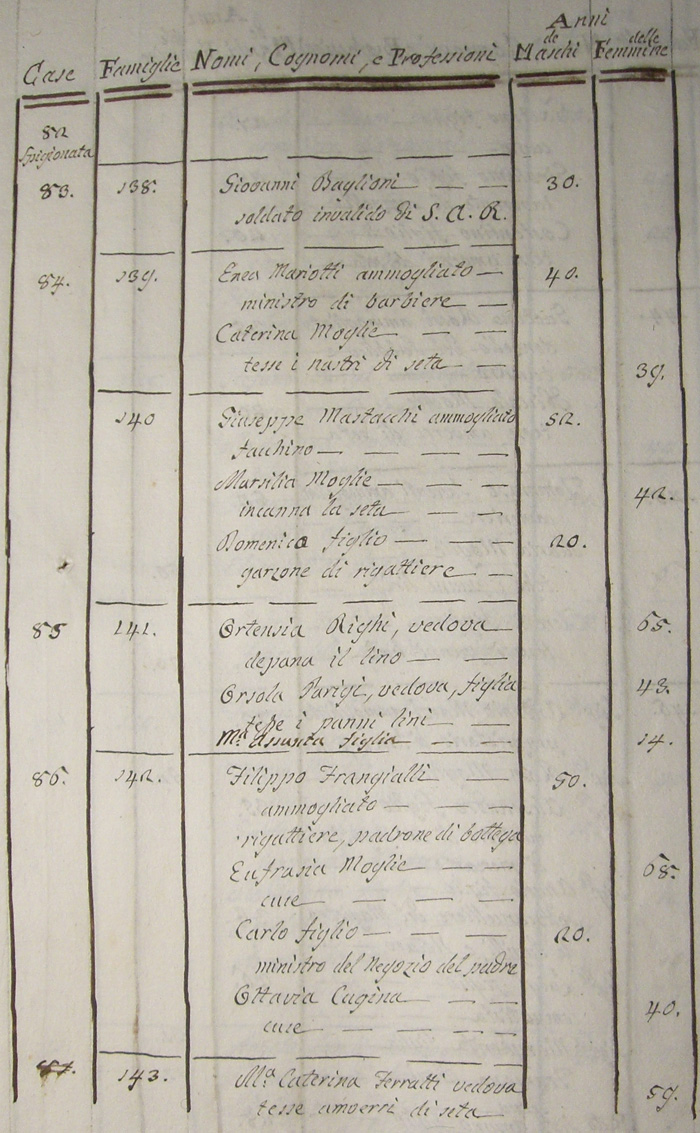 Anni
Case Famiglie Nomi, Cognomi, e Professioni de Maschi delle Femmine
82
Spigionata
83. 138. Giovanni Baglioni 30.
soldato invalido di S. A. R.
84. 139. Enea Mariotti ammogliato 40.
ministro di barbiere
Caterina Moglie
tesse i nastri di seta 39.
140 Giuseppe Mastacchi ammogliato 52.
facchino
Marsilia Moglie
incanna la seta 42.
Domenico figlio 20.
garzone di rigattiere
85 141. Ortensia Righi, vedova 65.
depana il lino
Orsola Parigi, vedova, figlia 43.
tesse i panni lini
Mª Assunta figlia 14.
86. 142. Filippo Frangialli 50.
ammogliato
rigattiere, padrone di bottega
Eufrasia Moglie 58.
cuce
Carlo figlio 20.
ministro del Negozio del padre
Ottavia Cugina 40.
cuce
87. 143. Mª Caterina Ferratti vedova
tesse amoerri di seta 59.